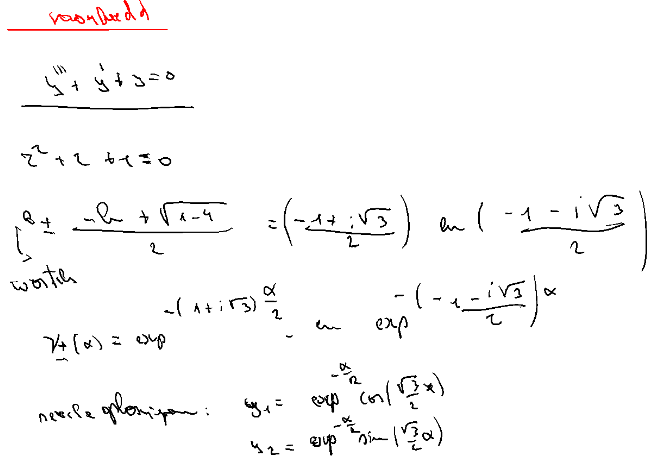 voorbeeld
y''' + y' + y = 0
z² + z + 1 = 0
z± = (-b ± √(1-4))/2 = ((-1 + i√3)/2) en ((-1 - i√3)/2)
wortels
y±(x) = exp^(-(1 + i√3) x/2) en exp^(-(-1 - i√3)/2)x
reële oplossingen: y₁ = exp^(-x/2) cos(√3/2 x)
y₂ = exp^(-x/2) sin(√3/2 x)